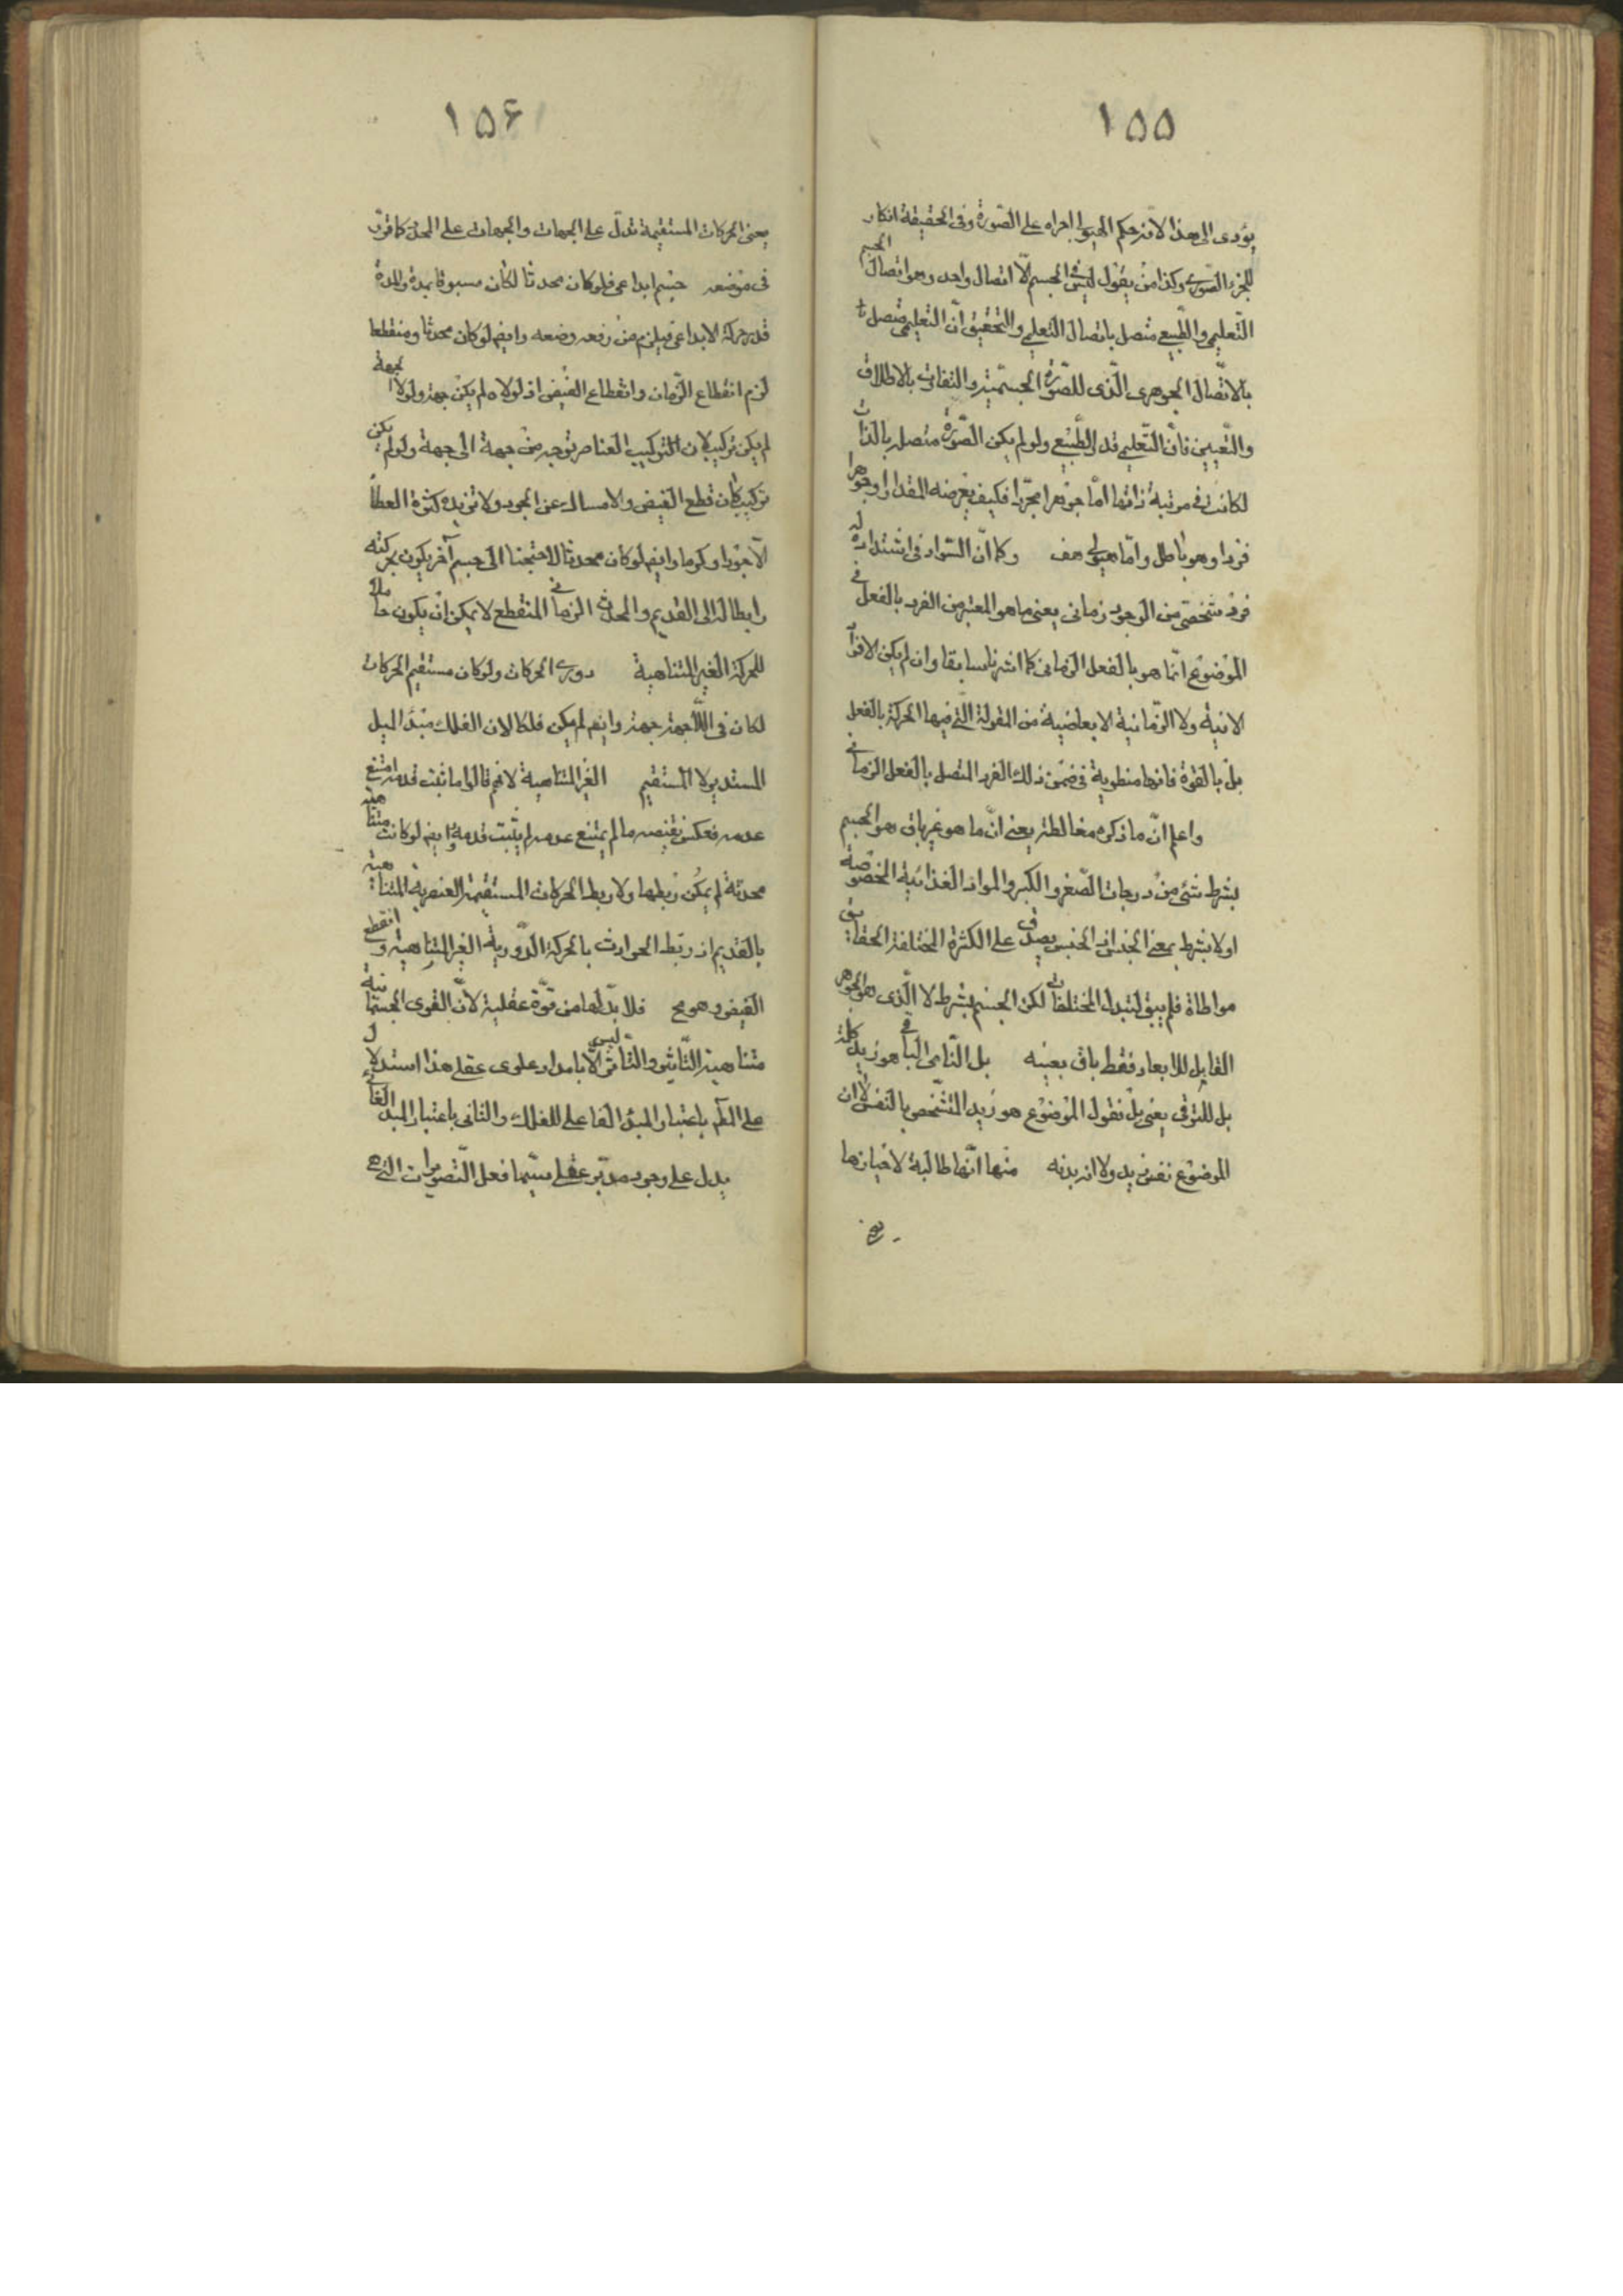 ١٥٥
يؤدى الى هذا لانه حكم الهيولى اجراه على الصّورة وفى الحقيقة انكار
للجزء الصّورى وكذا من يقول ليس فى الجسم الّا اتصال واحد وهو اتصال الجسم
التّعليمى والطّبيعى متصل باتصال التّعليمى والتحقيق انّ التعليمى متصل
بالاتّصال الجوهرى الّذى للصّورة الجسميّة والتفاوت بالاطلاق
والتّعيين فانّ التّعليمى قدر الطّبيعى ولو لم يكن الصّورة متصلة بالذات
لكانت فى مرتبة ذاتها امّا جوهرا مجرّدا فكيف يعرضه المقدار او جوهرا
فردا وهو باطل وامّا هيولى هف وكما انّ السّواد فى اشتداده له
فرد شخصّى من الوجود زمانى يعنى ما هو المعتبر من الفرد بالفعل فى
الموضوع انّما هو بالفعل الزمانى كما اشرنا سابقا وان لم يكن الافراد
الانية ولا الزّمانية الابعاضية من المقولة الّتى فيها الحركة بالفعل
بل بالقوّة فانها منطوية فى ضمن ذلك الفرد المتصل بالفعل الزمانى
واعلم انّ ما ذكره مغالطة يعنى انّ ما هو غير باق هو الجسم
بشرط شىء من درجات الصّغر والكبر والمواد الغذائية المخصوصة
اولا بشرط بمعنى الجنس اذ الجنس يصدق على الكثرة المختلفة الحقايق
مواطاة فلم يبق لتبدل المختلفات لكن الجسم بشرط لا الّذى هو الجوهر
القابل للابعاد فقط باق بعينه بل النّامى الباقى هو زيد كله
بل للترقى يعنى بل نقول الموضوع هو زيد المتشخص بالنفس لا ان
الموضوع نفس زيد ولا انه بدنه منها انّها طالبة لاحيازها
١٥٦
يعنى الحركات المستقيمة تدلّ على الجهات والجهات على المحدّد كما قرّر
فى موضعه جسم ابداعى فلو كان محدثا لكان مسبوقا بمدة والمدة
قدر حركة الابداعى فيلزم من رفعه وضعه وايضا لو كان محدثا ومنقطعا
لزم انقطاع الزّمان وانقطاع الفيض اذ لولاه لم يكن جهة ولولا الجهة
لم يكن تركيب لان التركيب العناصر بتوجه من جهة الى جهة ولو لم يكن
تركيب كان قطع الفيض والامساك عن الجود ولا تزيده كثرة العطاء
الّا جودا وكرما وايضا لو كان محدثا لاحتجنا الى جسم آخر يكون بحركته
رابطا له الى القديم والمحدث الزمانى المنقطع لا يمكن ان يكون حاملا
للحركة الغير المتناهية دورى الحركات ولو كان مستقيم الحركات
لكان فى اللّاجهة جهة وايضا لم يكن فلكا لان الفلك مبدأ الميل
المستدير لا المستقيم الغير المتناهية لانهم قالوا ما ثبت قدمه امتنع
عدمه فعكس نقيضه ما لم يمتنع عدمه لم يثبت قدمه وايضا لو كانت متناهية
محدثة لم يمكن ربطها ولا ربط الحركات المستقيمة العنصرية المتناهية
بالقديم اذ ربط الحوادث بالحركة الدّورية الغير المتناهية وانقطع
الفيض وهو مح فلا بدّ لها من قوّة عقلية لانّ القوى الجسمانية
متناهية التّاثير والتّاثر ليس الّا بامداد علوى عقلى هذا استدلال
على العقل باعتبار المبدء الفاعلى للفلك والثانى باعتبار المبدء الغائى
يدل على وجود مدبّر عقلى سيّما فعل التّصويرات الّتى هى